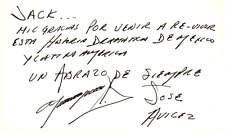 JACK...
MIL GRACIAS POR VENIR A RE-VIVIR
ESTA HISTORIA DRAMATICA DE MEXICO
Y LATINA AMERICA
UN ABRAZO DE SIEMPRE
JOSE